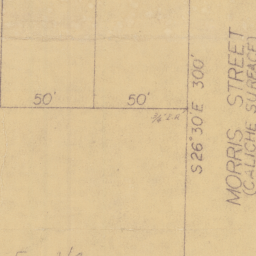 50' 50'
S 26° 30' E 300'
MORRIS STREET
(CALICHE SURFACE)